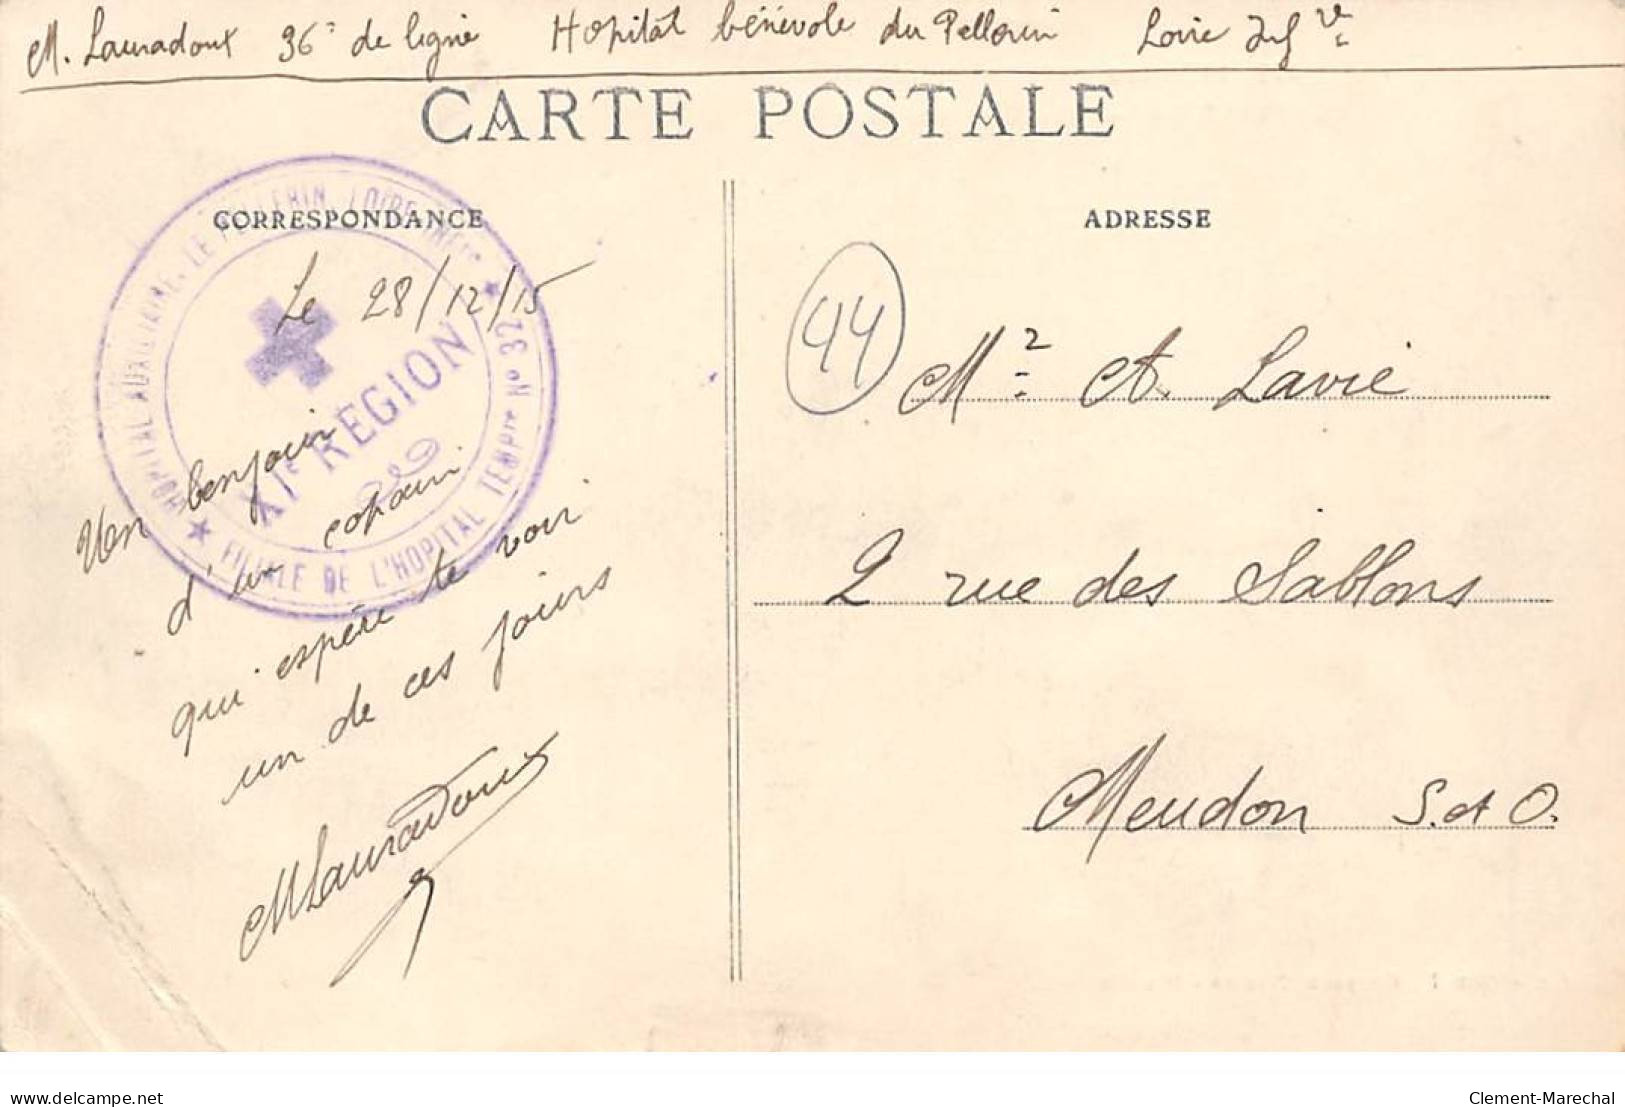 M. Lauradoux 36e de ligne Hôpital bénévole du Pellerin Loire Infre
CARTE POSTALE
CORRESPONDANCE
ADRESSE
HOPITAL AUXILIAIRE. LE PELLERIN. LOIRE INFre
XIe REGION
FILIALE DE L'HOPITAL TEMPre No 32
Le 28/12/15
Un bonjour
d'un copain
qui espère te voir
un de ces jours
MLauradoux
44
Mr A. Lavie
2 rue des Sablons
Meudon S. et O.
www.delcampe.net
Clement-Marechal